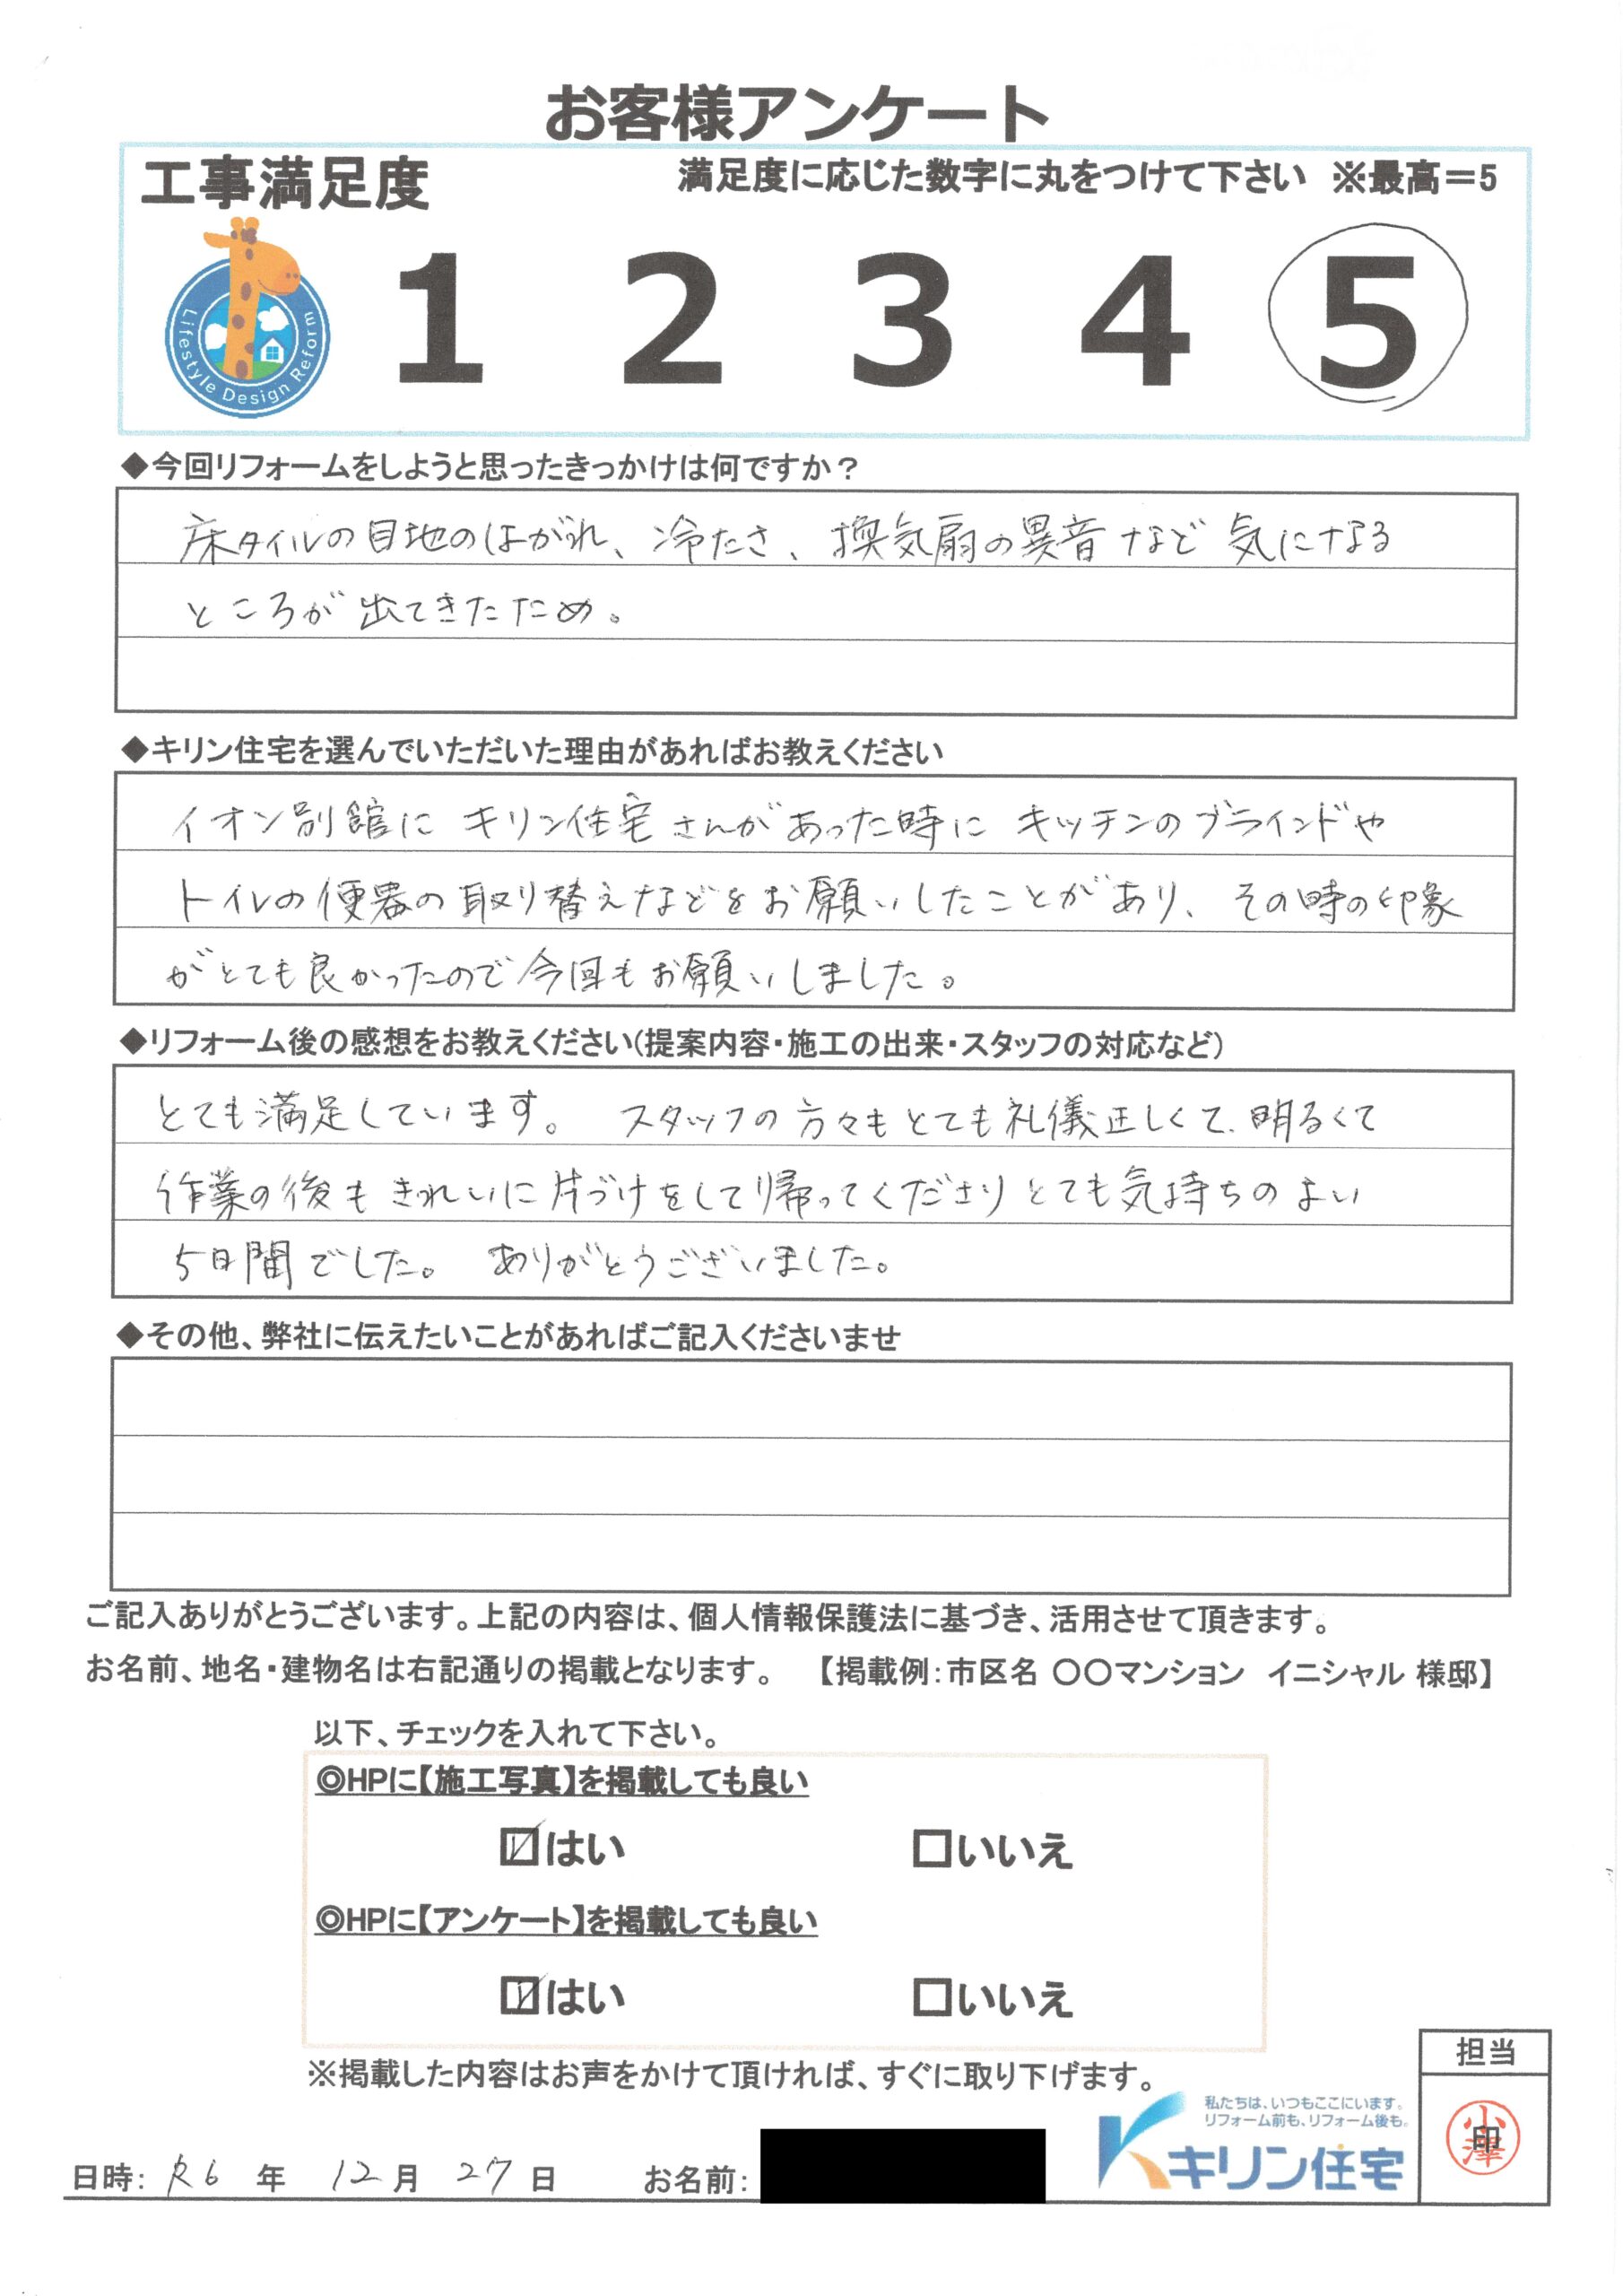 お客様アンケート
工事満足度
満足度に応じた数字に丸をつけて下さい ※最高＝5
Lifestyle Design Reform
1 2 3 4 5
◆今回リフォームをしようと思ったきっかけは何ですか？
床タイルの目地のはがれ、冷たさ、換気扇の異音など気になる
ところが出てきたため。
◆キリン住宅を選んでいただいた理由があればお教えください
イオン別館に キリン住宅さんがあった時に キッチンのブラインドや
トイレの便器の取り替えなどをお願いしたことがあり、その時の印象
がとても良かったので今回もお願いしました。
◆リフォーム後の感想をお教えください(提案内容・施工の出来・スタッフの対応など)
とても満足しています。 スタッフの方々もとても礼儀正しくて、明るくて
作業の後もきれいに片づけをして帰ってくださりとても気持ちのよい
5日間でした。 ありがとうございました。
◆その他、弊社に伝えたいことがあればご記入くださいませ
ご記入ありがとうございます。上記の内容は、個人情報保護法に基づき、活用させて頂きます。
お名前、地名・建物名は右記通りの掲載となります。 【掲載例：市区名 〇〇マンション イニシャル 様邸】
以下、チェックを入れて下さい。
◎HPに【施工写真】を掲載しても良い
☑はい □いいえ
◎HPに【アンケート】を掲載しても良い
☑はい □いいえ
※掲載した内容はお声をかけて頂ければ、すぐに取り下げます。
担当
私たちは、いつもここにいます。
リフォーム前も、リフォーム後も。
キリン住宅
小澤
印
日時： R6 年 12 月 27 日 お名前：